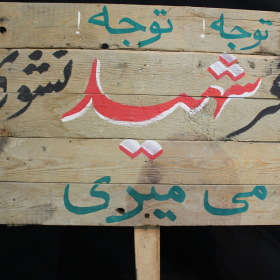 توجه ! توجه !
گر شهید نشوی
می میری